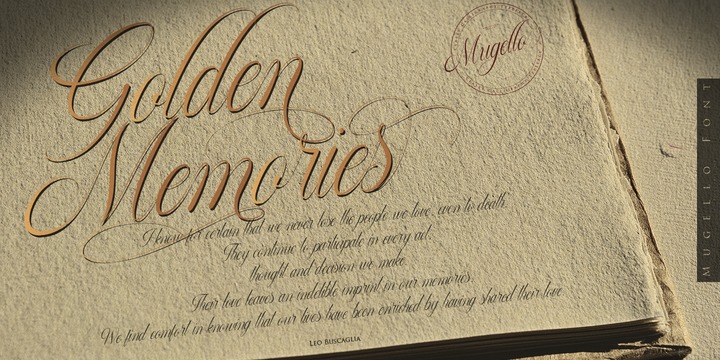 Golden
Memories
Mugello
I know for certain that we never lose the people we love, even to death.
They continue to participate in every act,
thought and decision we make.
Their love leaves an indelible imprint in our memories.
We find comfort in knowing that our lives have been enriched by having shared their love.
Leo Buscaglia
MUGELLO FONT